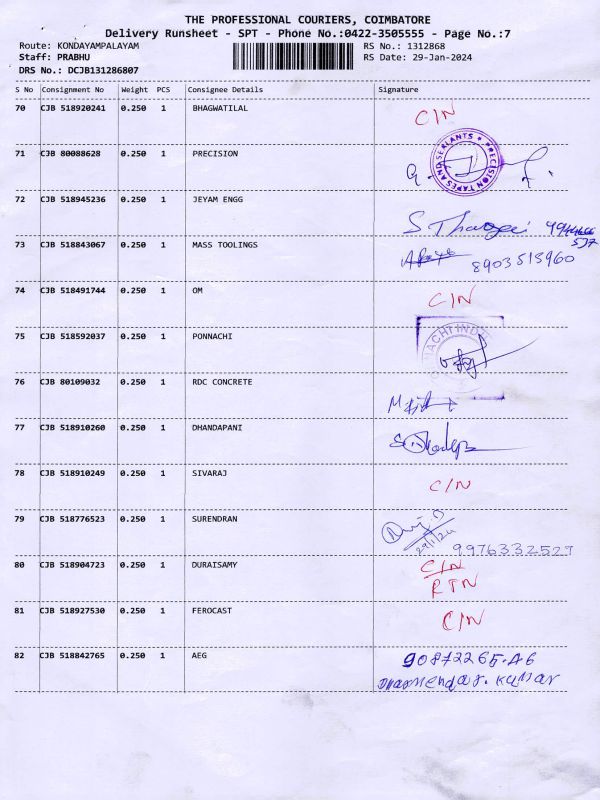 THE PROFESSIONAL COURIERS, COIMBATORE
Delivery Runsheet - SPT - Phone No.:0422-3505555 - Page No.:7
Route: KONDAYAMPALAYAM RS No.: 1312868
Staff: PRABHU RS Date: 29-Jan-2024
DRS No.: DCJB131286807
S No Consignment No Weight PCS Consignee Details Signature
70 CJB 518920241 0.250 1 BHAGWATILAL C/N
71 CJB 80088628 0.250 1 PRECISION
PRECISION TAPES AND SEALANTS
72 CJB 518945236 0.250 1 JEYAM ENGG
73 CJB 518843067 0.250 1 MASS TOOLINGS 8903515960
74 CJB 518491744 0.250 1 OM C/N
75 CJB 518592037 0.250 1 PONNACHI
76 CJB 80109032 0.250 1 RDC CONCRETE
77 CJB 518910260 0.250 1 DHANDAPANI
78 CJB 518910249 0.250 1 SIVARAJ C/N
79 CJB 518776523 0.250 1 SURENDRAN
29/1/24 9976332527
80 CJB 518904723 0.250 1 DURAISAMY C/N
RTN
81 CJB 518927530 0.250 1 FEROCAST C/N
82 CJB 518842765 0.250 1 AEG